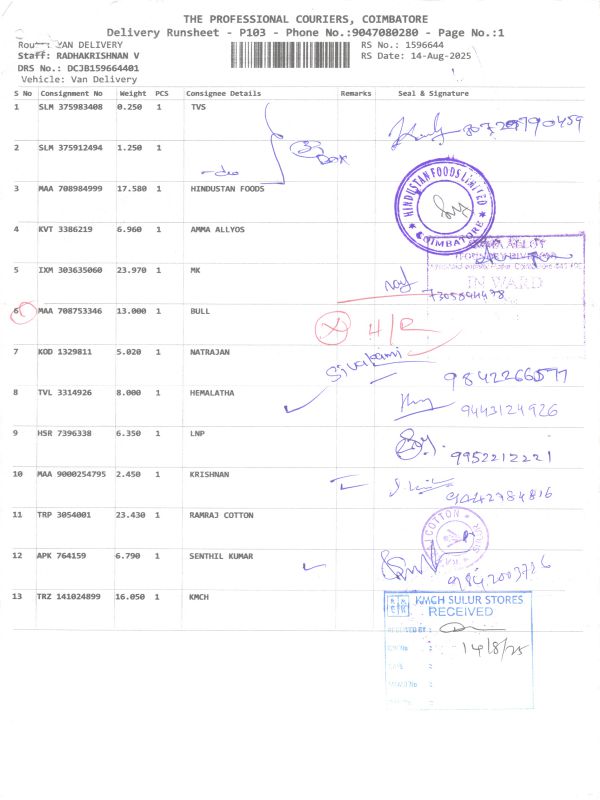 THE PROFESSIONAL COURIERS, COIMBATORE
Delivery Runsheet - P103 - Phone No.:9047080280 - Page No.:1
Route: VAN DELIVERY
RS No.: 1596644
Staff: RADHAKRISHNAN V
RS Date: 14-Aug-2025
DRS No.: DCJB159664401
Vehicle: Van Delivery
S No Consignment No Weight PCS Consignee Details Remarks Seal & Signature
1 SLM 375983408 0.250 1 TVS
2 SLM 375912494 1.250 1 -do Box
3 MAA 708984999 17.580 1 HINDUSTAN FOODS
HINDUSTAN FOODS LIMITED
COIMBATORE
4 KVT 3386219 6.960 1 AMMA ALLYOS
IN WARD
5 IXM 303635060 23.970 1 MK
7305844478
6 MAA 708753346 13.000 1 BULL
7 KOD 1329811 5.020 1 NATRAJAN Sivakami
9842266577
8 TVL 3314926 8.000 1 HEMALATHA
9443124926
9 HSR 7396338 6.350 1 LNP
9952212221
10 MAA 9000254795 2.450 1 KRISHNAN
9042784816
11 TRP 3054001 23.430 1 RAMRAJ COTTON
COTTON
12 APK 764159 6.790 1 SENTHIL KUMAR
13 TRZ 141024899 16.050 1 KMCH
KMCH SULUR STORES
RECEIVED
RECEIVED BY :
14/8/25
DATE :